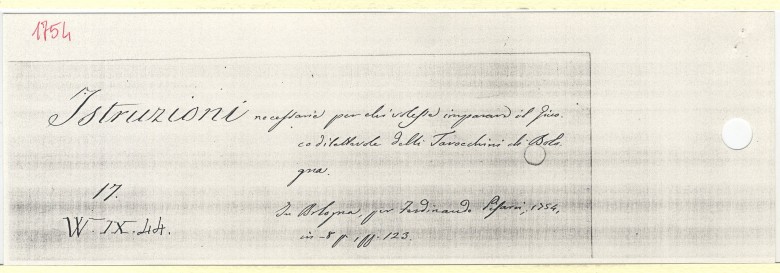 1754
Istruzioni necessarie per chi volesse imparare il Giuo.
co dilettevole delli Tarocchini di Bolo.
gna.
17.
In Bologna, per Ferdinando Pisarri, 1754,
W. IX. 44.
in-8 p., ff. 123.